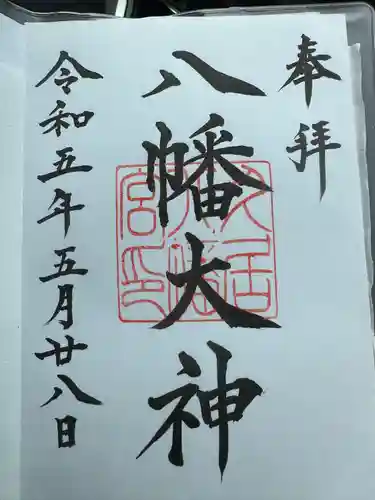 奉拝
八幡大神
令和五年五月廿八日